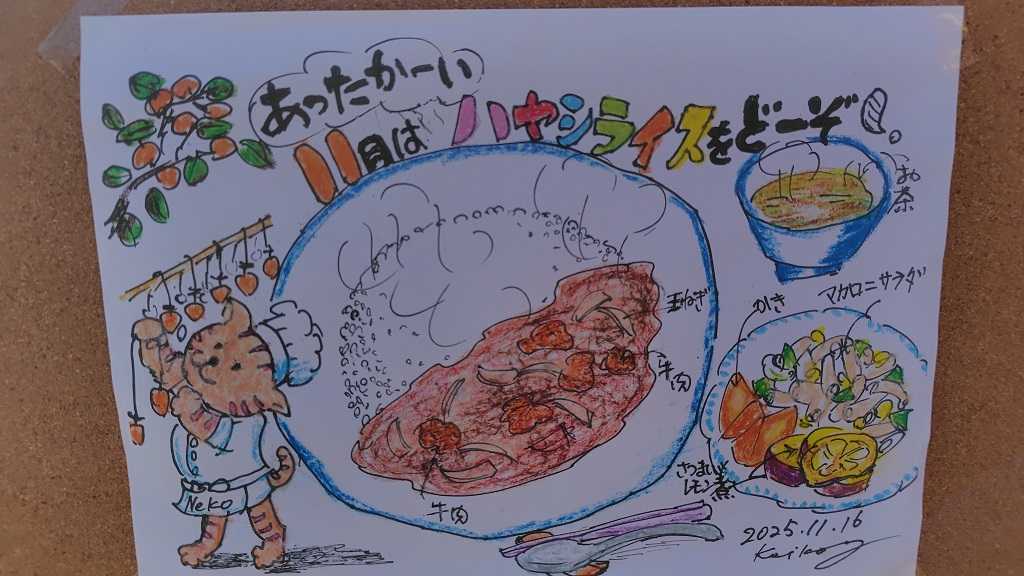 あったかーい
11月は ハヤシライスをどーぞ
お茶
玉ねぎ
牛肉
牛肉
かき
マカロニサラダ
さつまいも
レモン煮
Neko
2025.11.16
Keiko